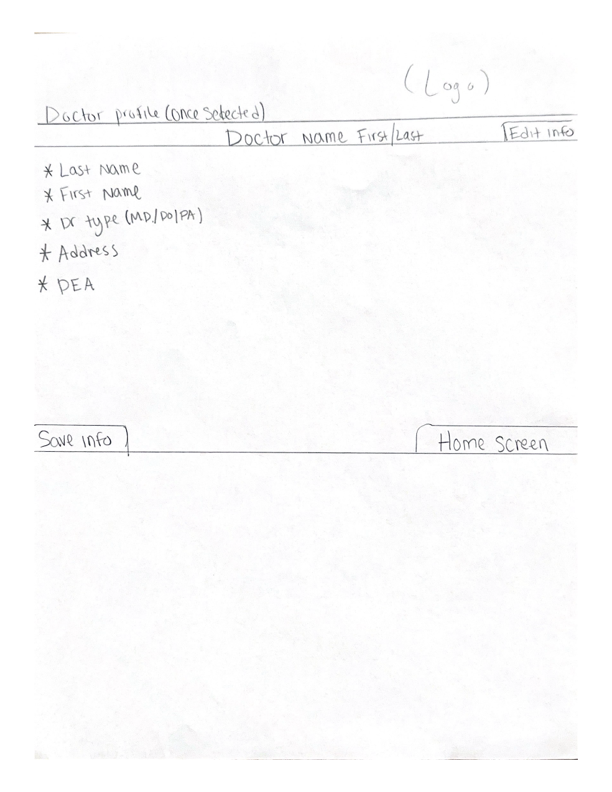 (Logo)
Doctor profile (once selected)
Doctor Name First/Last
Edit info
* Last Name
* First Name
* Dr type (MD/DO/PA)
* Address
* DEA
Save info
Home Screen